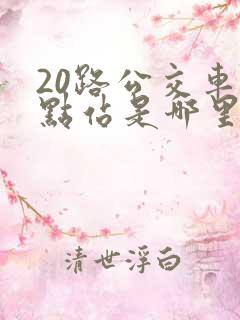 20路公交車
點佔是哪里
清世浮白